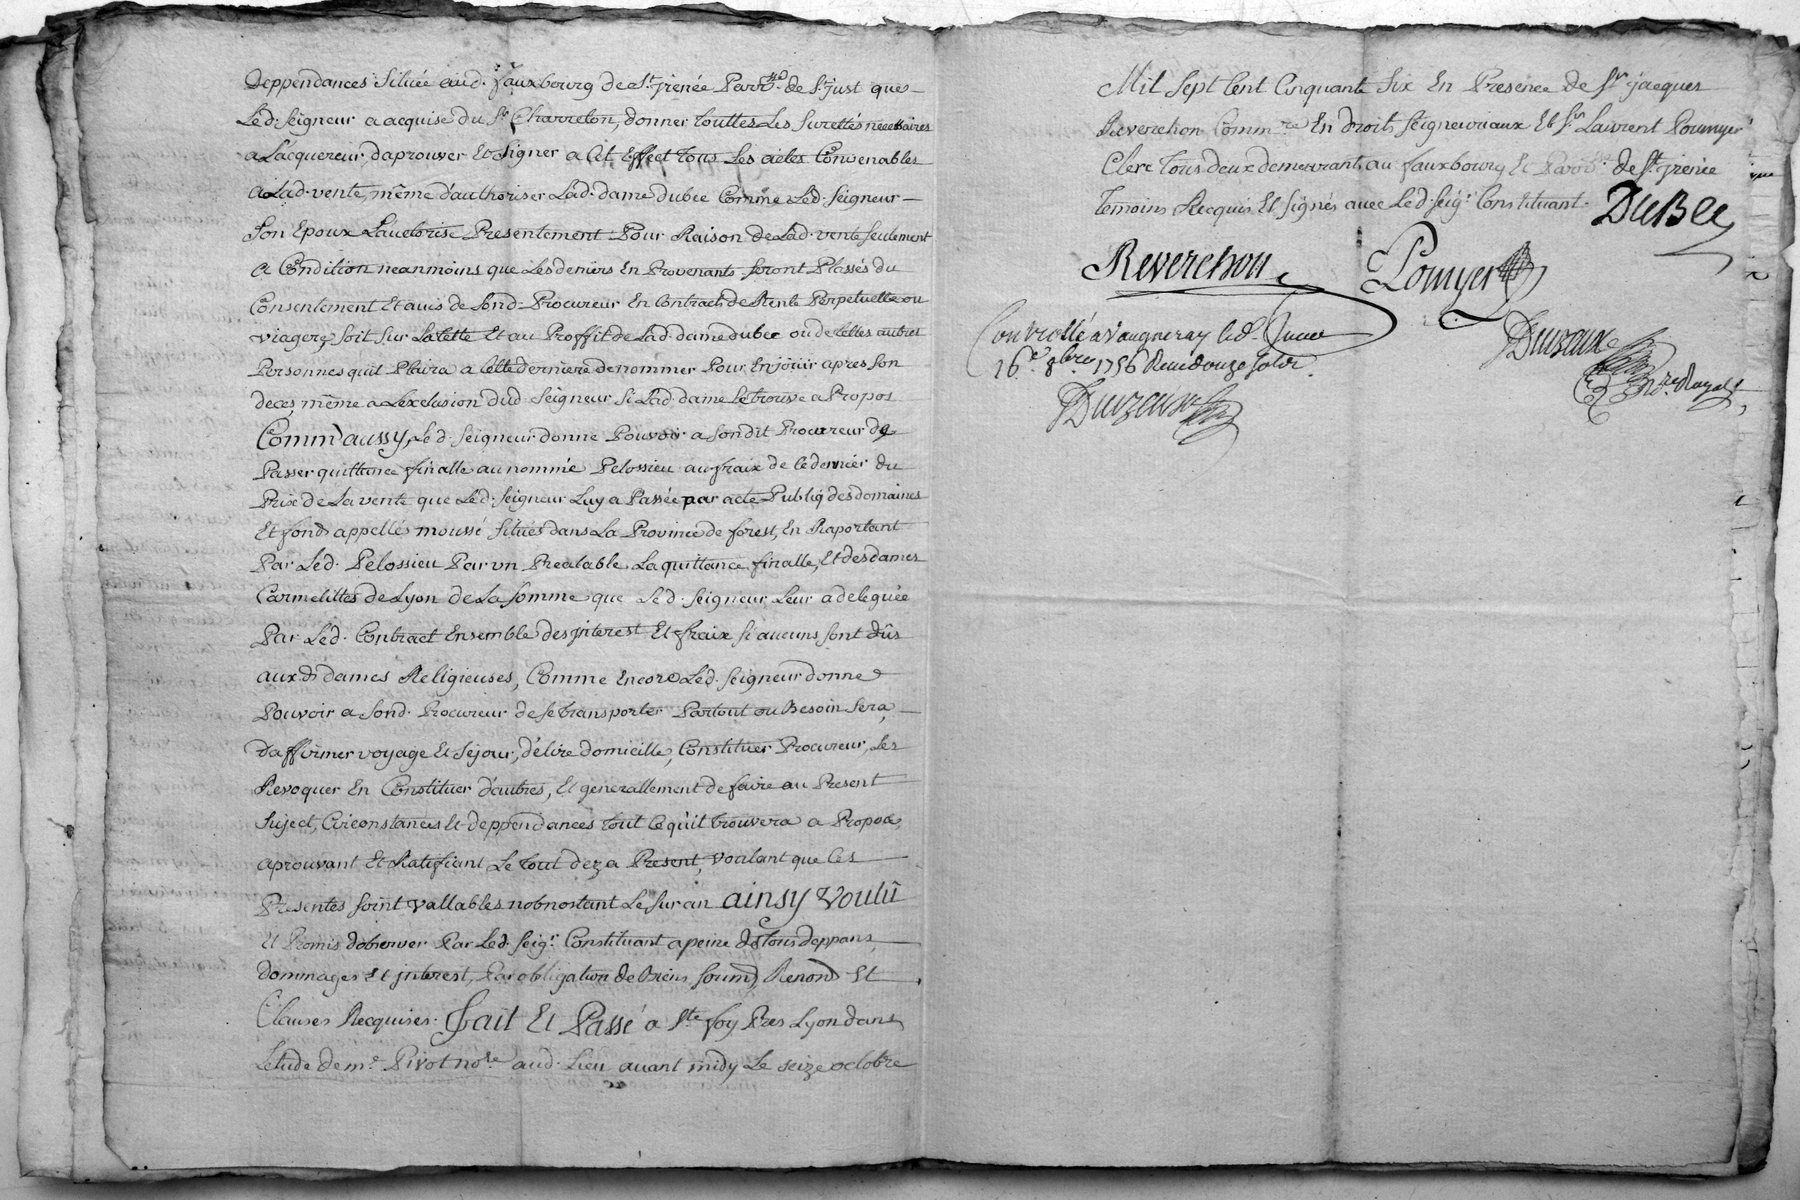 Deppendances Situéé aud. fauxbourg de St. jrenée Parr.sse de St. just que
Led. Seigneur a acquise du Sr. Charreton, donner touttes Les Surettés neccessaires
a Lacquereur, daprouver Et Signer a Cet Effect tous Les actes Convenables
a Lad. vente, même d'authoriser Lad. dame dubec Comme Led. Seigneur
Son Epoux Lauctorise Presentement Pour Raison de Lad. vente Seulement
a Condition neanmoins que Les deniers En Provenants Seront Plassés du
Consentement Et avis de Sond. Procureur En Contracts de Rente Perpetuelle ou
viagere, Soit Sur La tette Et au Proffit de Lad. dame dubec ou de telles autres
Personnes quil Plaira a Cette derniere de nommer Pour En joüir apres Son
deces, même a Lexclusion dud. Seigneur Si Lad. dame Le trouve a Propos
Comm'aussy, Led. Seigneur donne Pouvoir a Sondit Procureur de
Passer quittance finalle au nommée Pelossieu au fraix de ce dernier du
Prix de La vente que Led. Seigneur Luy a Passée par acte Publiq des domaines
Et fonds appellés moussé Situés dans La Province de forest, En Raportant
Par Led. Pelossieu Par un Prealable La quittance finalle, Et des dames
Carmelittes de Lyon de La Somme que Led. Seigneur Leur a deleguée
Par Led. Contract Ensemble des jnterest Et fraix Si aucuns Sont dûs
aux d. dames Religieuses, Comme Encore Led. Seigneur donne
Pouvoir a Sond. Procureur de Se transporter Partout ou Besoin Sera,
Daffirmer voyage Et Séjour, d'élire domicille, Constituer Procureur, Les
Revoquer En Constituer d'autres, Et generallement de faire au Present
Suject, Circonstances Et deppendances tout Ce quil trouvera a Propos,
aprouvant Et Ratifiant Le tout dez a Present, voulant que Ces
Presentes Soint vallables nobnostant Le Suran ainsy voulû
Et Promis dobserver Par Led. Seigr. Constituant a peine de tous deppans,
dommages Et jnterest, Par obligation de Biens Soumd. Renond. Et
Clauses Recquises. fait Et Passé a Ste. foy Pres Lyon dans
Letude de me. Pivot nore. aud. Lieu avant midy Le Seize octobre
Mil Sept Cent Cinquante Six En Presence de Sr. jacques
Reverchon Commre. En droits Seigneuriaux Et Sr. Laurent Poumyer
Clerc tous deux demeurants au fauxbourg Et Parr.sse de St. jrenée
temoins Recquis Et Signés avec Led. Seigr. Constituant.
DuBec
Reverchon
Pomyer
Duvzaux
nre. Royal
Controllé a Vaugneray led. Jour
16e. 8bre 1756 Recu douze Sols